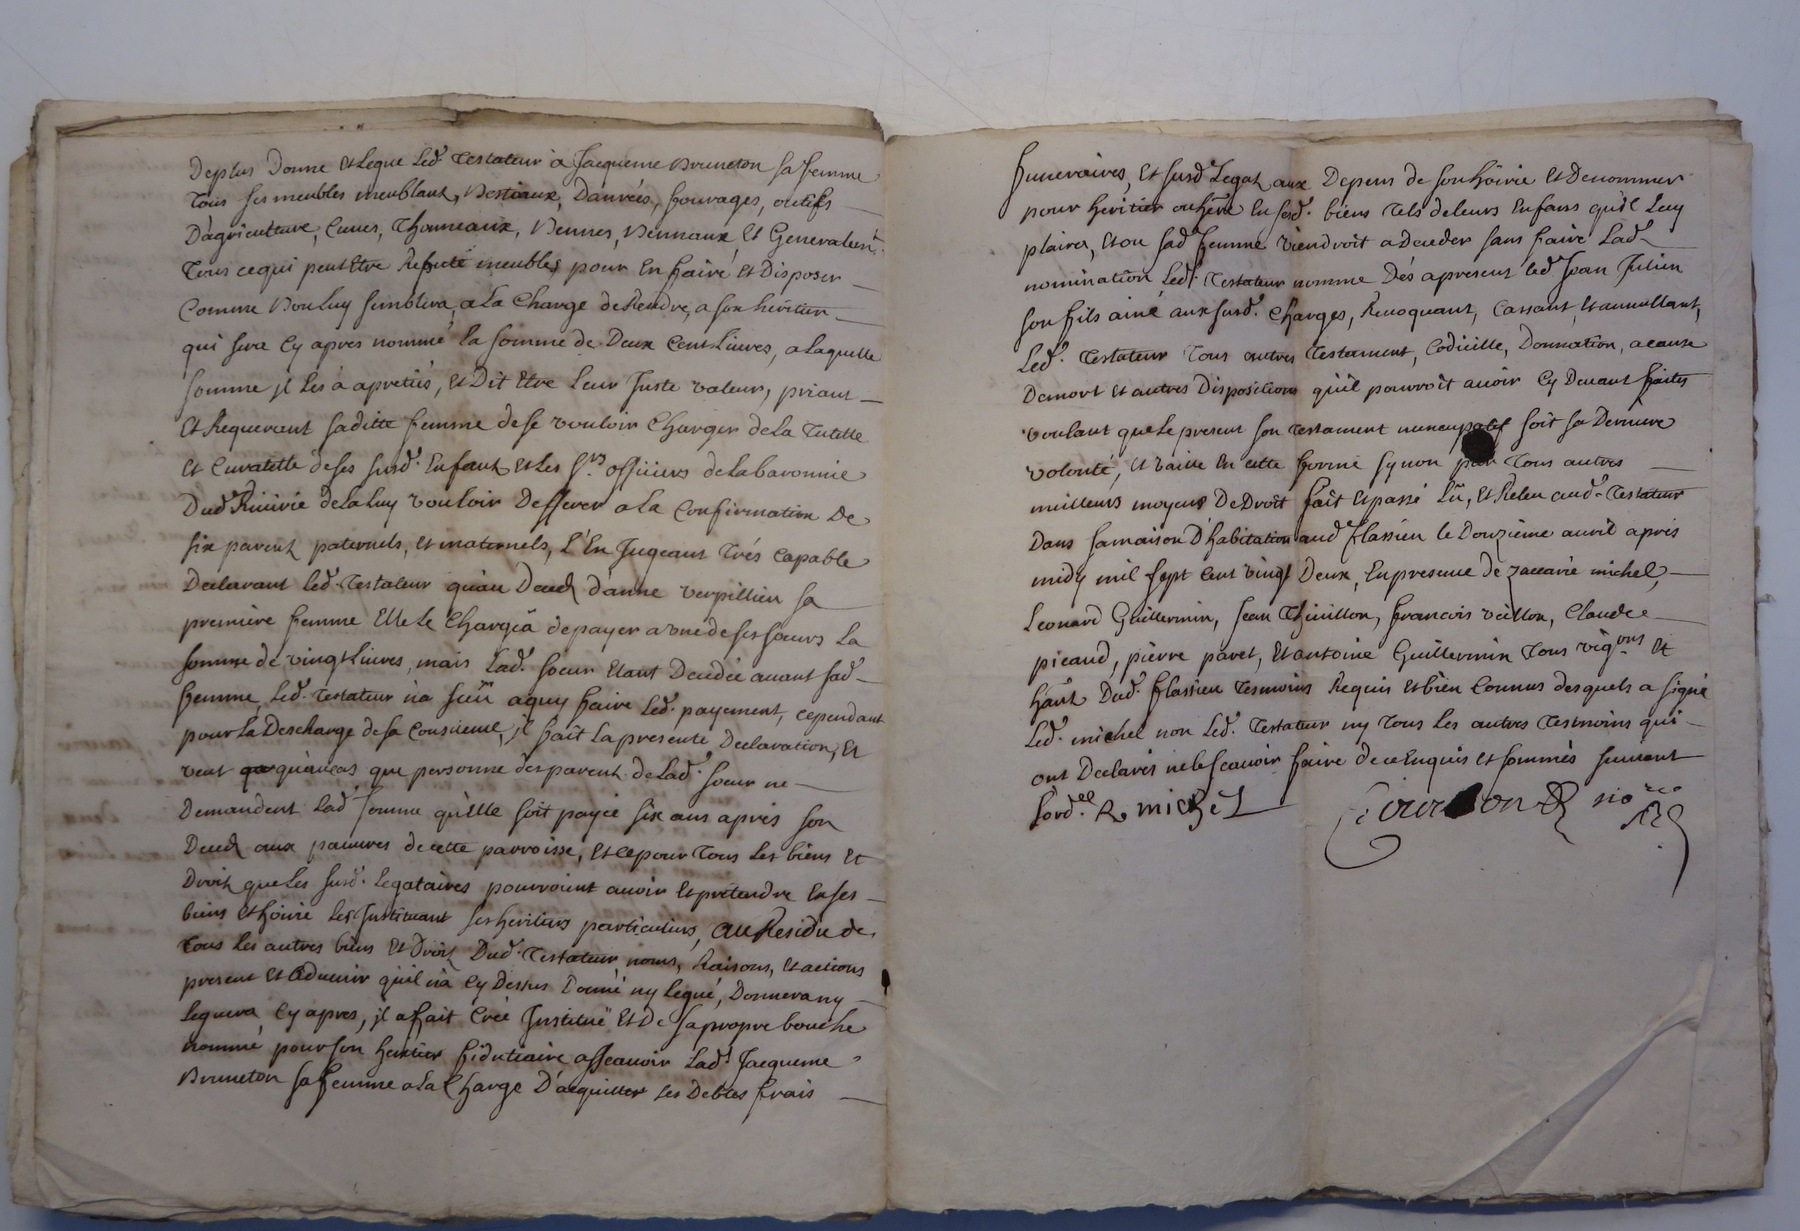 Deplus Donne Et legue Led. Testateur à Jacqueme Bruneton sa femme
Tous ses meubles meublant, Bestiaux, Danrées, fourages, outils
D'agriculture, Cuves, Thonneaux, Bennes, Bennaux Et Generalem.t
Tous ce qui peut Etre Reputé meubles pour En faire Et Disposer
Comme Bon luy semblera, a la Charge de Rendre, a son héritier
qui sera Cy apres nommé la somme de Deux Cent Livres, a laquelle
somme jl les à apretiés, Et Dit Etre Leur Juste valeur, priant
Et Requerant saditte femme de se vouloir Charger de la Tutelle
Et Curatelle de ses susd. Enfant Et les S.rs officiers de la baronnie
Dud. Riuirie de la luy vouloir Defferer a la Confirmation De
six parent paternels, Et maternels, L'En Jugeant Trés Capable
Declarant Led. Testateur qu'au Deced d'anne verpillieu sa
premiére femme Elle Le Chargéa de payer a vne de ses soeurs La
somme de vingt Livres, mais Lad. soeur Etant Decedée auant sad.
femme, Led. Testateur n'a sceü a quy faire Led. payement, cependant
pour La Descharge de sa Consciense, jl fait La presente Declaration, Et
veut qu'encas que personne des parent de Lad. soeur ne
Demandent Lad. somme qu'Elle soit payée six ans aprés son
Deced aux pauvres de cette parroisse, Et ce pour Tous Les biens Et
Droit que Les susd. Legataires pourroient auoir Et prétendre En ses
biens Et hoirie Les Instituant ses heritiers particuliers, au Residu de
Tous Les autres biens Et Droit Dud. Testateur noms, Raisons, Et actions
present Et aduenir qu'il n'a Cy Dessus Donné ny Legué, Donnera ny
Leguera Cy apres, jl a fait Créé Institué Et De sa propre bouche
nommé pour son heritier fidutiaire assçauoir Lad. Jacqueme
Bruneton sa femme a la Charge D'acquitter ses Debtes frais
funeraires, Et susd. Legat aux Depens de son hoirie Et De nommer
pour heritier ou here En sesd. biens Tels de leurs Enfans qu'il Luy
plaira, Et ou sad. femme viendroit a Deceder sans faire Lad.
nomination Led. Testateur nomme Dés a present led. Jean Julien
son fils ainé aux susd. Charges, Reuoquant, Cassant, Et annullant,
Led. Testateur Tous autres Testament, Codicille, Donnation, a cause
De mort Et autres Dispositions qu'il pourroit auoir Cy Deuant faites
voulant que Le present son Testament nuncupatif soit sa Derniere
volonté, Et vaille En cette forme synon par Tous autres
meilleurs moyens De Droit fait Et passé Lû, Et Releu aud. Testateur
Dans sa maison D'habitation aud. flassieu le Douziéme auril aprés
midy mil sept Cent vingt Deux, En presence de zaccarie michel,
Leonard Guillermin, Jean Thiuillon, francois veillon, Claude
picaud, piérre pavet, Et antoine Guillermin Tous vig.ons Et
hânt Dud. flassieu Tesmoins Requis Et bien Connus desquels a signé
Led. michel non Led. Testateur ny Tous les autres Tesmoins qui
ont Declarés ne le scauoir faire de ce Enquis Et sommés suiuant
Lord.ce R michel